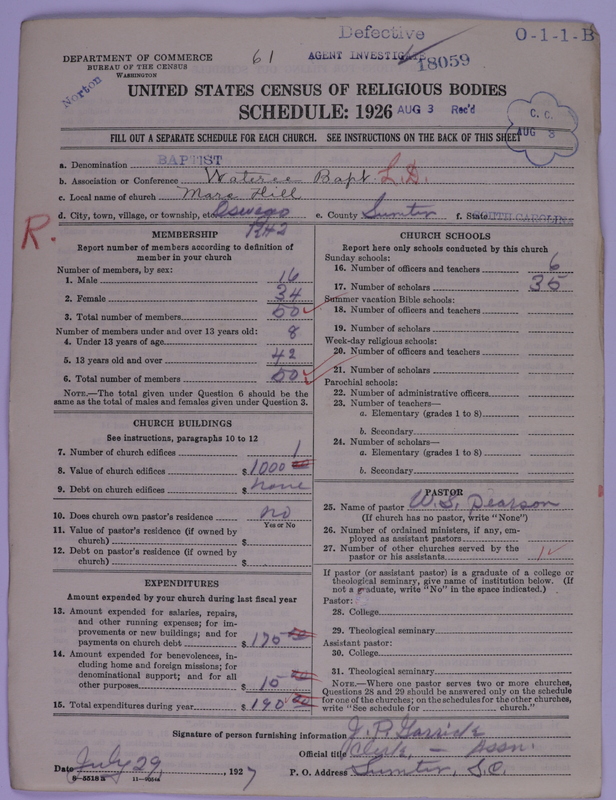 Defective
O-1-1-B
DEPARTMENT OF COMMERCE
BUREAU OF THE CENSUS
WASHINGTON
61
AGENT INVESTIGATE
18059
Norton
UNITED STATES CENSUS OF RELIGIOUS BODIES
SCHEDULE: 1926
AUG 3 Rec'd
C. C.
AUG 3
FILL OUT A SEPARATE SCHEDULE FOR EACH CHURCH. SEE INSTRUCTIONS ON THE BACK OF THIS SHEET
a. Denomination BAPTIST
b. Association or Conference Wateree Bapt. L.D.
c. Local name of church Mars Hill
d. City, town, village, or township, etc. Oswego e. County Sumter f. State SOUTH CAROLINA
R#2
R.
MEMBERSHIP
Report number of members according to definition of
member in your church
Number of members, by sex:
1. Male 16
2. Female 34
3. Total number of members 50
Number of members under and over 13 years old:
4. Under 13 years of age 8
5. 13 years old and over 42
6. Total number of members 50
NOTE.—The total given under Question 6 should be the
same as the total of males and females given under Question 3.
CHURCH BUILDINGS
See instructions, paragraphs 10 to 12
7. Number of church edifices 1
8. Value of church edifices $ 1000
9. Debt on church edifices $ none
10. Does church own pastor's residence no
Yes or No
11. Value of pastor's residence (if owned by
church) $
12. Debt on pastor's residence (if owned by
church) $
EXPENDITURES
Amount expended by your church during last fiscal year
13. Amount expended for salaries, repairs,
and other running expenses; for im-
provements or new buildings; and for
payments on church debt $
14. Amount expended for benevolences, in-
cluding home and foreign missions; for
denominational support; and for all
other purposes $ 15
15. Total expenditures during year $ 190
CHURCH SCHOOLS
Report here only schools conducted by this church
Sunday schools:
16. Number of officers and teachers 6
17. Number of scholars 35
Summer vacation Bible schools:
18. Number of officers and teachers
19. Number of scholars
Week-day religious schools:
20. Number of officers and teachers
21. Number of scholars
Parochial schools:
22. Number of administrative officers
23. Number of teachers—
a. Elementary (grades 1 to 8)
b. Secondary
24. Number of scholars—
a. Elementary (grades 1 to 8)
b. Secondary
PASTOR
25. Name of pastor W. S. Pearson
(If church has no pastor, write "None")
26. Number of ordained ministers, if any, em-
ployed as assistant pastors
27. Number of other churches served by the
pastor or his assistants
If pastor (or assistant pastor) is a graduate of a college or
theological seminary, give name of institution below. (If
not a graduate, write "No" in the space indicated.)
Pastor:
28. College
29. Theological seminary
Assistant pastor:
30. College
31. Theological seminary
NOTE.—Where one pastor serves two or more churches,
Questions 28 and 29 should be answered only on the schedule
for one of the churches; on the schedules for the other churches,
write "See schedule for church."
Signature of person furnishing information J. P. Garrick
Official title Clerk, - Assn.
Date July 29, 1927 P. O. Address Sumter, S.C.
8-5518 a